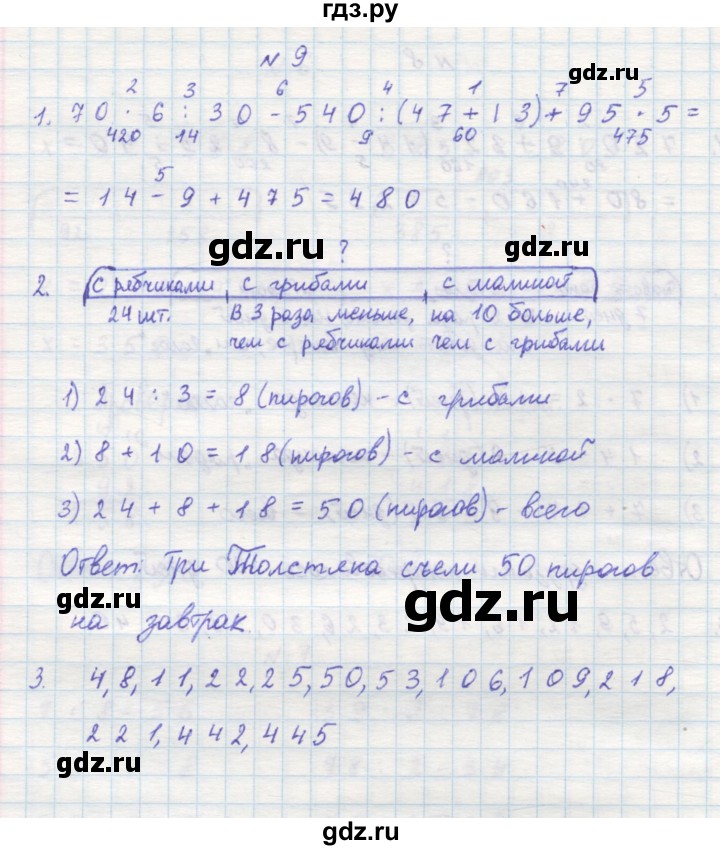 гдз.ру
№ 9
2 3 6 4 1 7 5
1. 70 · 6 : 30 - 540 : (47 + 13) + 95 · 5 =
420 14 9 60 475
5
= 14 - 9 + 475 = 480
gdz.ru
gdz.ru
gdz.ru
?
2. с рябчиками, с грибами, с малиной
24 шт. в 3 раза меньше, на 10 больше,
чем с рябчиками чем с грибами
1) 24 : 3 = 8 (пирогов) - с грибами
2) 8 + 10 = 18 (пирогов) - с малиной
3) 24 + 8 + 18 = 50 (пирогов) - всего
Ответ: три Толстяка съели 50 пирогов
на завтрак.
gdz.ru
gdz.ru
3. 4, 8, 11, 22, 25, 50, 53, 106, 109, 218,
221, 442, 445
gdz.ru
gdz.ru
gdz.ru